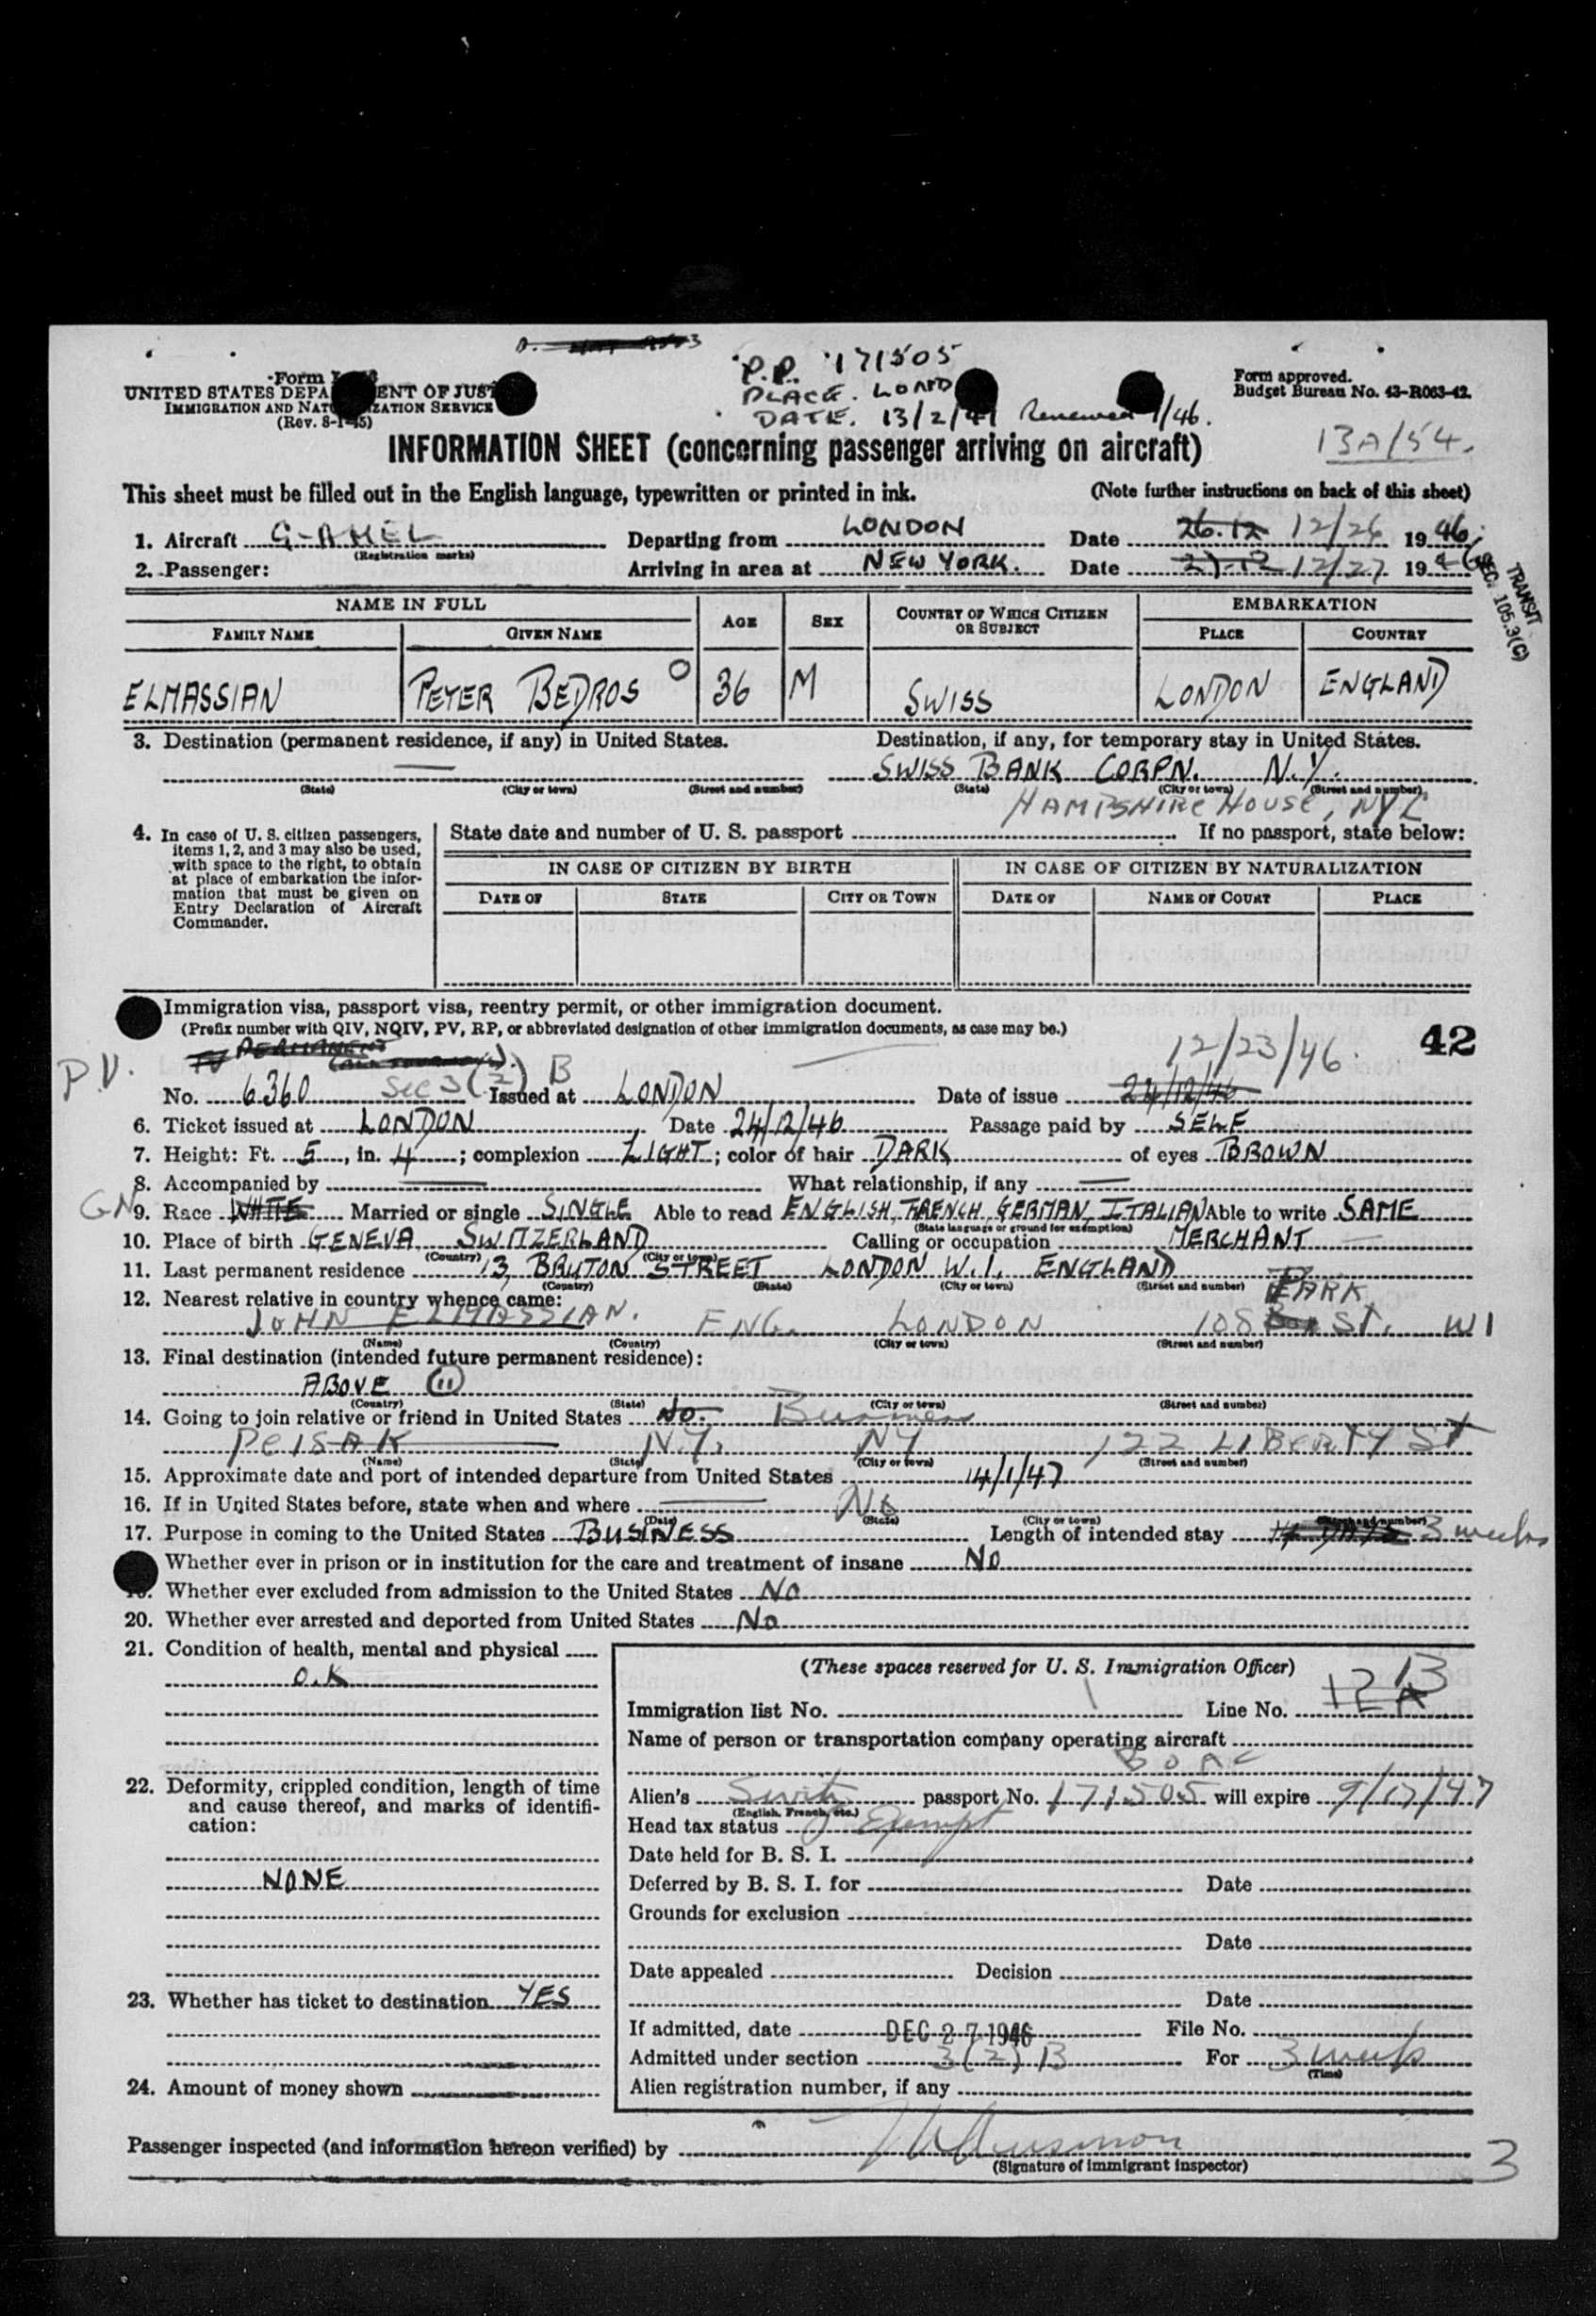 P.P. 171505
PLACE. LOND
DATE. 13/2/41 Renewed 1/46.
Form
UNITED STATES DEPA ENT OF JUST
IMMIGRATION AND NAT IZATION SERVICE
(Rev. 8-1-45)
Form approved.
Budget Bureau No. 43-R063-42.
13A/54.
INFORMATION SHEET (concerning passenger arriving on aircraft)
This sheet must be filled out in the English language, typewritten or printed in ink. (Note further instructions on back of this sheet)
1. Aircraft G-AHEL Departing from LONDON Date 26.12 12/26 1946
(Registration marks)
2. Passenger: Arriving in area at NEW YORK. Date 27.12 12/27 1946
TRANSIT
SEC. 105.3(C)
NAME IN FULL AGE SEX COUNTRY OF WHICH CITIZEN OR SUBJECT EMBARKATION
FAMILY NAME GIVEN NAME PLACE COUNTRY
ELMASSIAN PETER BEDROS 36 M SWISS LONDON ENGLAND
3. Destination (permanent residence, if any) in United States. Destination, if any, for temporary stay in United States.
— SWISS BANK CORPN. N.Y.
(State) (City or town) (Street and number) (State) (City or town) (Street and number)
HAMPSHIRE HOUSE, NYC
4. In case of U. S. citizen passengers, items 1, 2, and 3 may also be used, with space to the right, to obtain at place of embarkation the information that must be given on Entry Declaration of Aircraft Commander.
State date and number of U. S. passport If no passport, state below:
IN CASE OF CITIZEN BY BIRTH IN CASE OF CITIZEN BY NATURALIZATION
DATE OF STATE CITY OR TOWN DATE OF NAME OF COURT PLACE
Immigration visa, passport visa, reentry permit, or other immigration document.
(Prefix number with QIV, NQIV, PV, RP, or abbreviated designation of other immigration documents, as case may be.)
42
PERMANENT
P.V. Sec 3(2) B 12/23/46.
No. 6360 Issued at LONDON Date of issue 24/12/46
6. Ticket issued at LONDON Date 24/12/46 Passage paid by SELF
7. Height: Ft. 5, in. 4; complexion LIGHT; color of hair DARK of eyes BROWN
8. Accompanied by — What relationship, if any —
GN 9. Race WHITE Married or single SINGLE Able to read ENGLISH, FRENCH, GERMAN, ITALIAN Able to write SAME
(State language or ground for exemption)
10. Place of birth GENEVA SWITZERLAND Calling or occupation MERCHANT
(Country) (City or town)
11. Last permanent residence 13, BRUTON STREET LONDON W.1. ENGLAND
(Country) (State) (City or town) (Street and number)
12. Nearest relative in country whence came:
JOHN ELMASSIAN. ENG. LONDON 108 PARK ST. W1
(Name) (Country) (City or town) (Street and number)
13. Final destination (intended future permanent residence):
ABOVE (11)
(Country) (State) (City or town) (Street and number)
14. Going to join relative or friend in United States No. Business
PEISAK N.Y. NY 122 LIBERTY ST
(Name) (State) (City or town) (Street and number)
15. Approximate date and port of intended departure from United States 14/1/47
16. If in United States before, state when and where — No
(Date) (State) (City or town) (Street and number)
17. Purpose in coming to the United States BUSINESS Length of intended stay 14 DAYS 3 weeks
Whether ever in prison or in institution for the care and treatment of insane NO
19. Whether ever excluded from admission to the United States NO
20. Whether ever arrested and deported from United States No
21. Condition of health, mental and physical
O.K
22. Deformity, crippled condition, length of time and cause thereof, and marks of identification:
NONE
23. Whether has ticket to destination YES
24. Amount of money shown
(These spaces reserved for U. S. Immigration Officer)
Immigration list No. 1 Line No. 12A 13
Name of person or transportation company operating aircraft
BOAC
Alien's Switz passport No. 171505 will expire 9/17/47
(English, French, etc.)
Head tax status Exempt
Date held for B. S. I.
Deferred by B. S. I. for Date
Grounds for exclusion
Date
Date appealed Decision
Date
If admitted, date DEC 27 1946 File No.
Admitted under section 3(2)B For 3 weeks
(Time)
Alien registration number, if any
Passenger inspected (and information hereon verified) by
(Signature of immigrant inspector)
3